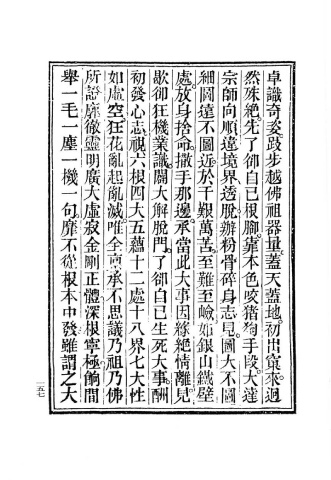 卓識奇姿。跂步越佛祖器量。蓋天蓋地。初出窠來。迥
然殊絶。先了卻自已根腳靠本色咬猪狗手段。大達
宗師向順違境界透脫辦粉骨碎身志。見圖大不圖
細圖遠不圖近於千艱萬苦。至難至嶮如銀山鐵壁
處。放身捨命。撒手那邊。承當此大事因緣絶情離見。
歇卻狂機業識開大解脫門。了卻自已生死大事。酬
初發心志視六根四大五蘊十二處十八界七大性
如虛空狂花亂起亂滅唯全承不思議乃祖乃佛
所證廓徹靈明廣大虛寂金剛正體深根寧極餉間
舉一毛一塵一機一句。靡不從根本中發雖謂之大
一五七